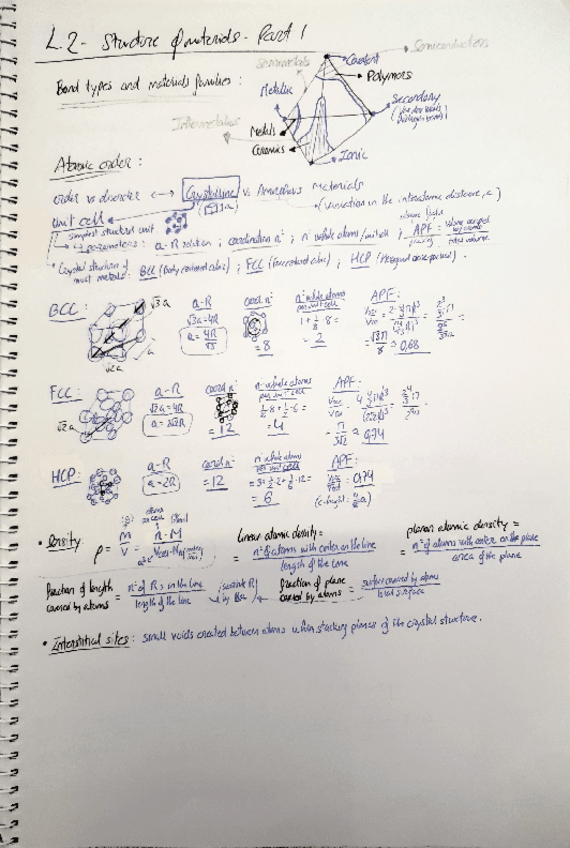 L.2 - Structure of materials - Part 1
Semiconductors
Semimetals
Covalent
Bond types and materials families:
Polymers
Metallic
Secondary
Intermetallics
Metals
Ceramics
Ionic
Atomic order:
order vs disorder <-> Crystalline vs Amorphous materials
(variation in the interatomic distance, a)
Unit cell
simplest structure unit
parameters: a-R relation; coordination nº; nº whole atoms/unit cell; APF = volume occupied by atoms / total volume
• Crystal structure of most metals: BCC (Body centered cubic); FCC (Face centered cubic); HCP (Hexagonal close packed).
BCC:
√3 a
a
√2 a
a-R
√3a = 4R
a = 4R/√3
coord nº:
= 8
nº whole atoms per unit cell
1 + 1/8 · 8 =
= 2
APF:
= √3π/8 ≈ 0,68
FCC:
√2 a
a-R
√2a = 4R
a = 2√2R
coord nº:
= 12
nº whole atoms per unit cell
1/8 · 8 + 1/2 · 6 =
= 4
APF:
= π/3√2 ≈ 0,74
HCP:
a-R
a = 2R
coord nº:
= 12
nº whole atoms per unit cell
= 3 + 1/2 · 2 + 1/6 · 12 =
= 6
APF:
≈ 0,74
• Density
ρ = m/V = n·M / Vcell·NA
linear atomic density =
= nº of atoms with center on the line / length of the line
planar atomic density =
= nº of atoms with center on the plane / area of the plane
fraction of length covered by atoms = nº of R's in the line / length of the line
fraction of plane covered by atoms = surface covered by atoms / total surface
• Interstitial sites: small voids created between atoms when stacking planes of the crystal structure.